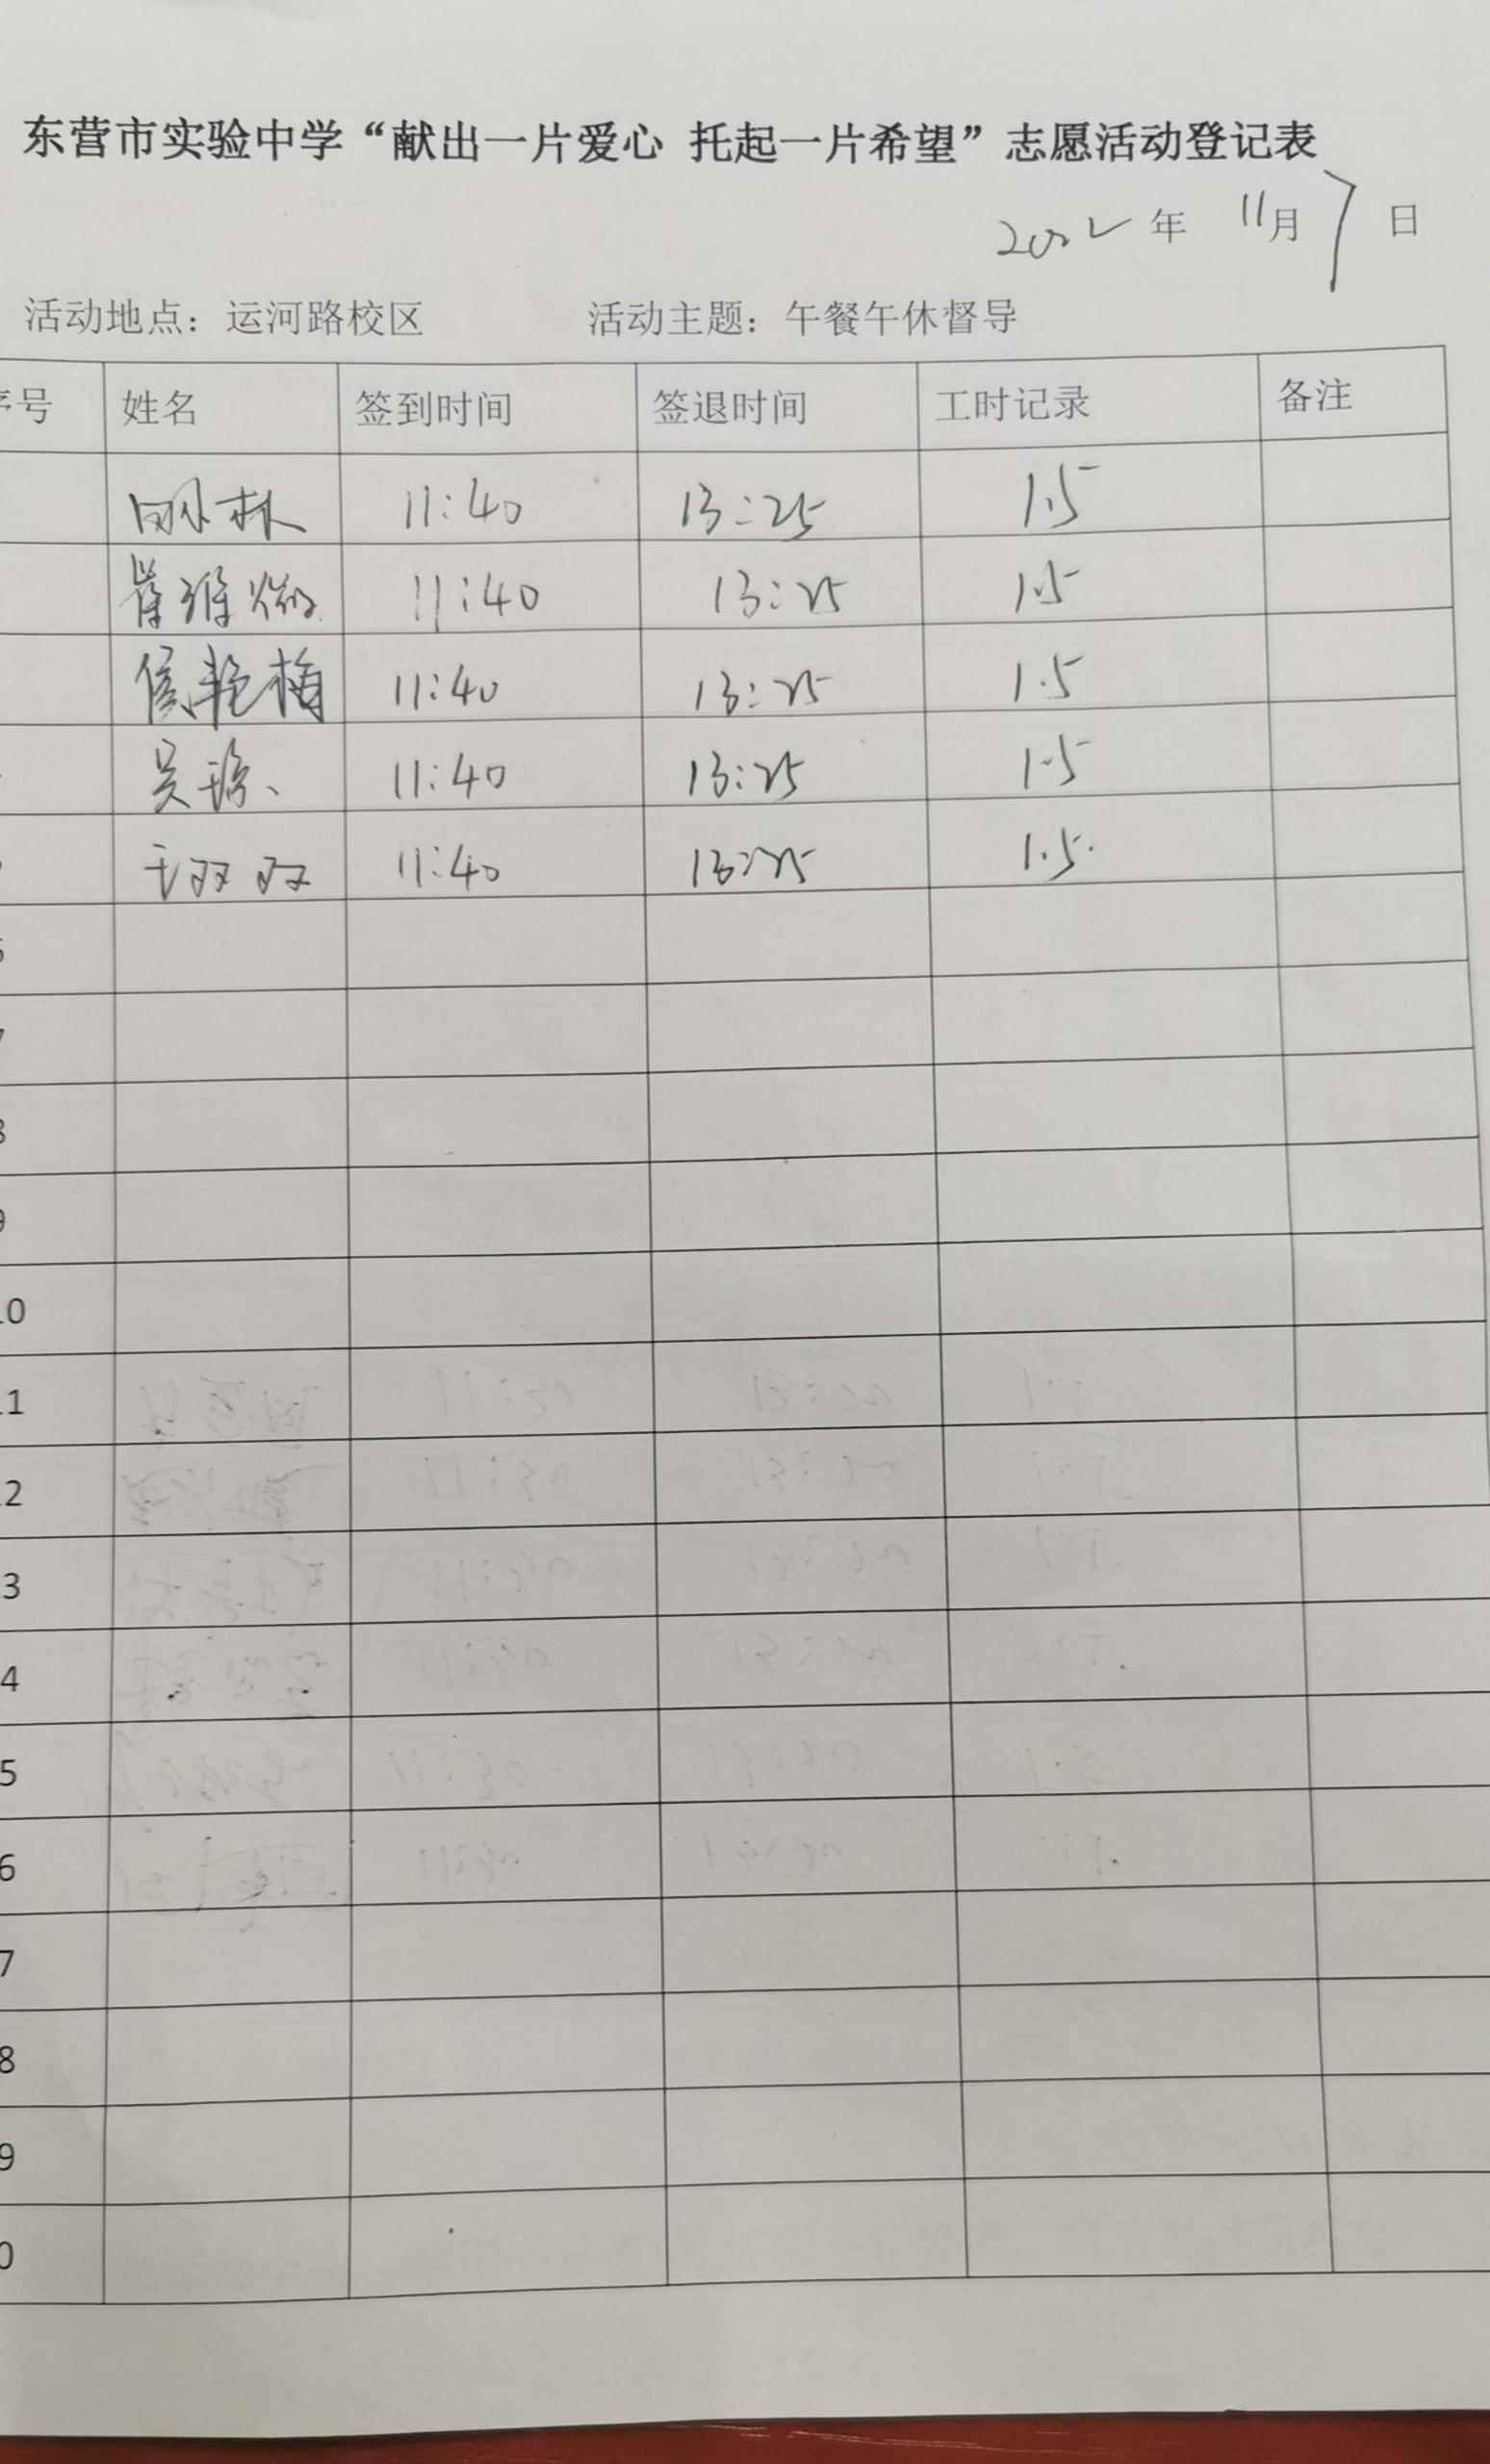 东营市实验中学“献出一片爱心 托起一片希望”志愿活动登记表
2022年 11月7日
活动地点：运河路校区 活动主题：午餐午休督导
序号 姓名 签到时间 签退时间 工时记录 备注
11:40 13:25 1.5
崔维 11:40 13:25 1.5
侯艳梅 11:40 13:25 1.5
吴琼 11:40 13:25 1.5
王双双 11:40 13:25 1.5
6
7
8
9
10
11
12
13
14
15
16
17
18
19
20